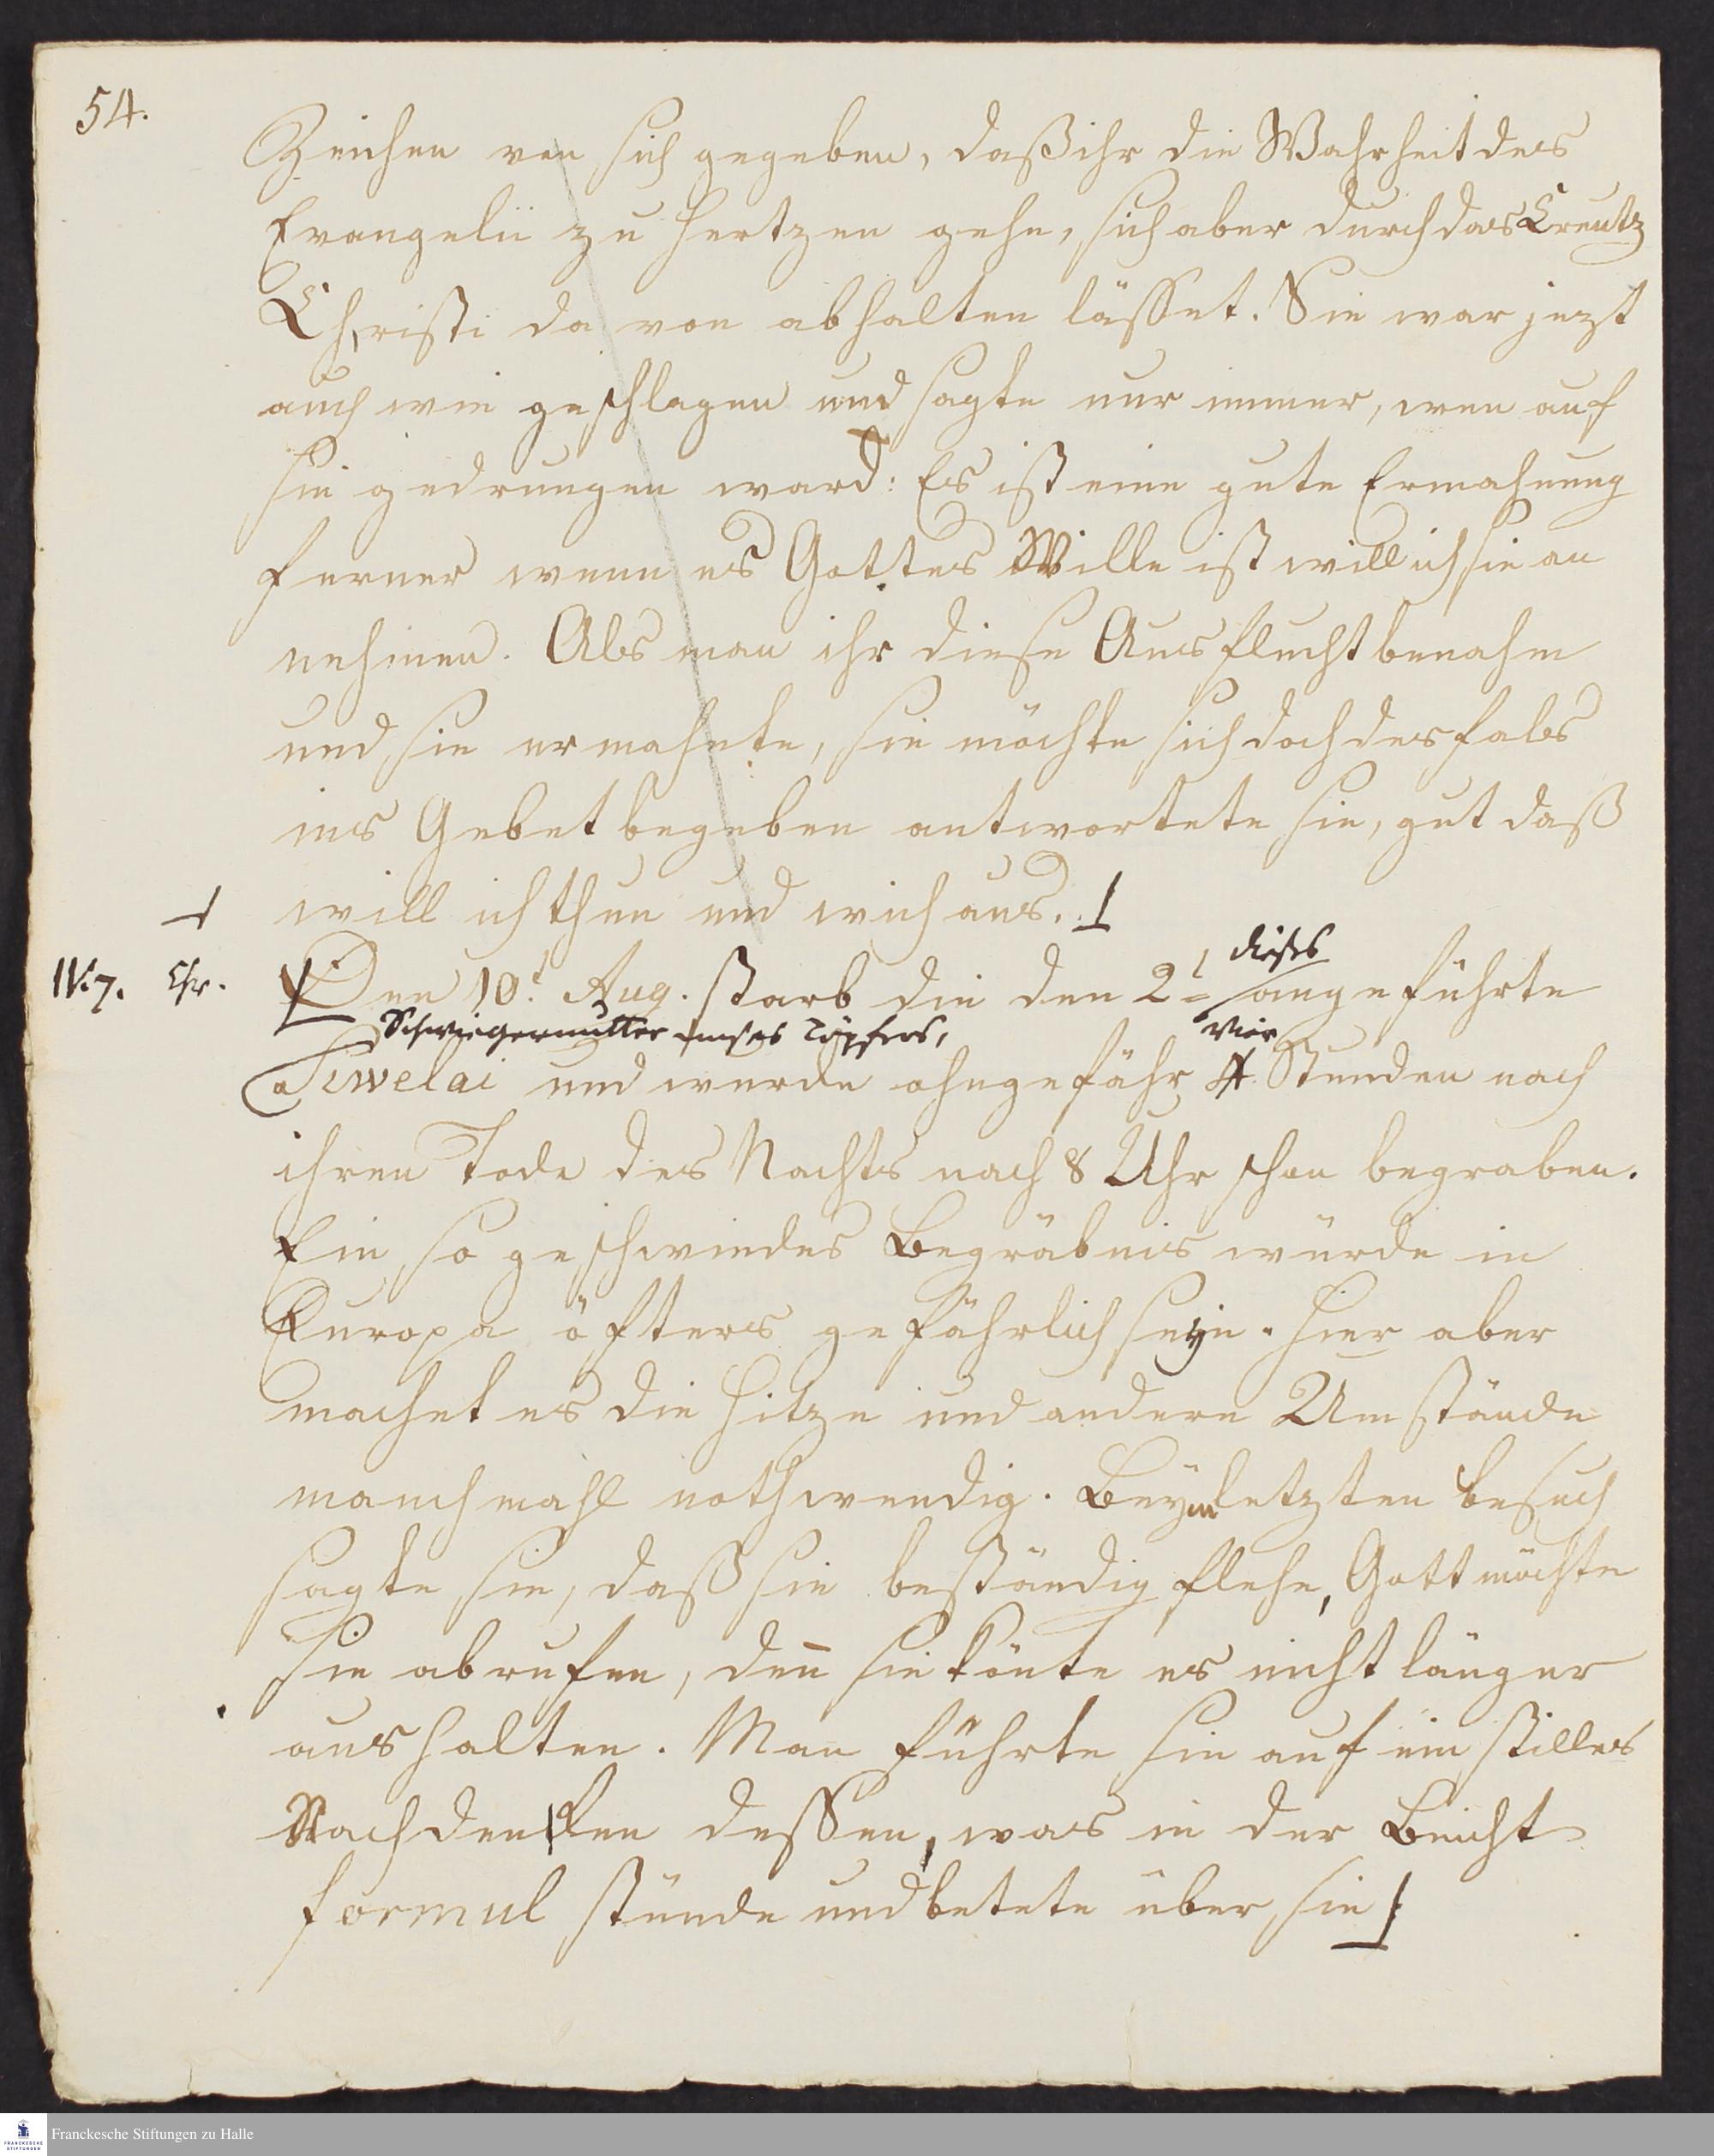 54.
Zeichen von sich gegeben, daß ihr die Wahrheit des
Evangelii zu Hertzen gehe, sich aber durch das Creutz
Christi da von abhalten läßet. Sie war jezt
auch wie geschlagen und sagte nur immer, wen auf
sie gedrungen ward: Es ist eine gute Ermahnung
ferner wenn es Gottes Wille ist will ich sie an
nehmen. Als man ihr diese Ausflucht benahm
und sie ermahnte, sie möchte sich doch desfals
ins Gebet begeben antwortete sie, gut daß
will ich thun und wich aus.
dieses
IV. 7. Chr. Den 10t Aug. starb die den 2t angeführte
Schwiegermutter eines Töpfers, vier
Siwelai und wurde ohngefähr 4. Stunden nach
ihren Tode des Nachts nach 8 Uhr schon begraben.
Ein so geschwindes Begräbnis würde in
Europa öfters gefährlich seyn. Hier aber
machet es die Hitze und andere Umstände
manchmahl nothwendig. Beym letzten Besuch
sagte sie, daß sie beständig flehe, Gott möchte
sie abrufen, den̄ sie könte es nicht länger
aushalten. Man führte sie auf ein stilles
Nachdenken deßen, was in der Beicht
formul stünde und betete über sie
Franckesche Stiftungen zu Halle